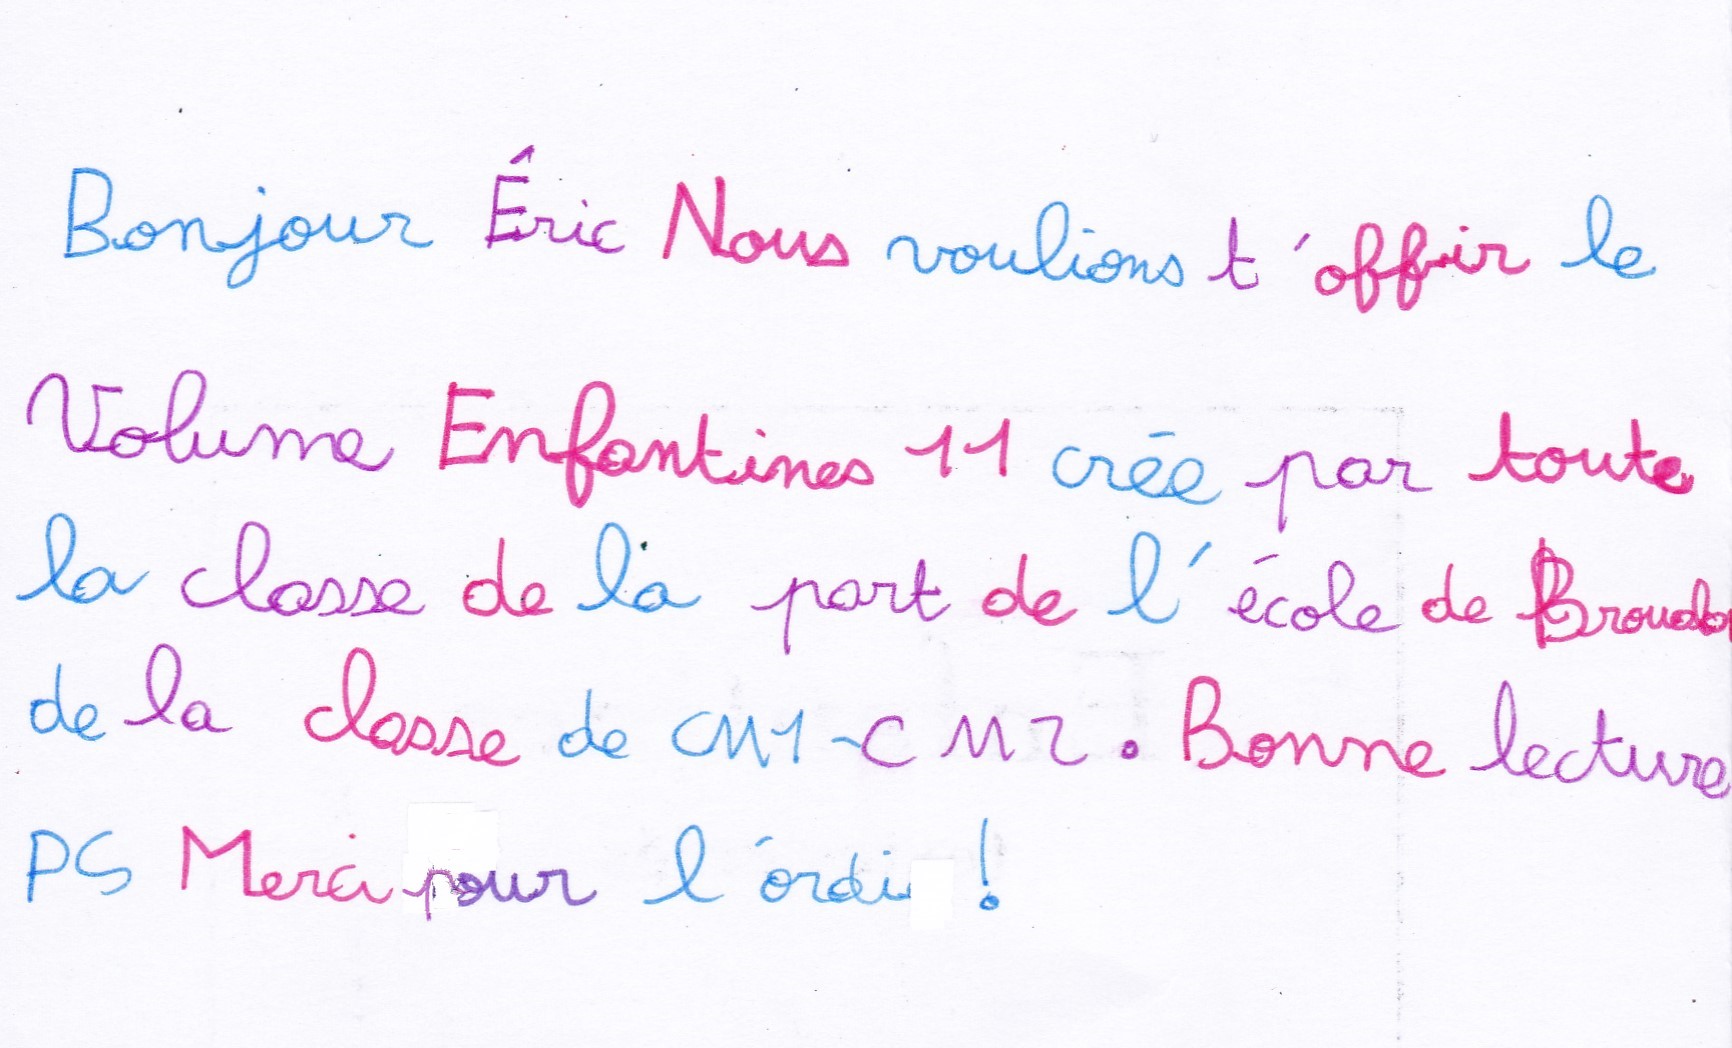 Bonjour Éric Nous voulions t'offrir le
Volume Enfantines 11 crée par toute
la classe de la part de l'école de
de la classe de CM1-CM2. Bonne lecture
PS Merci pour l'ordi !